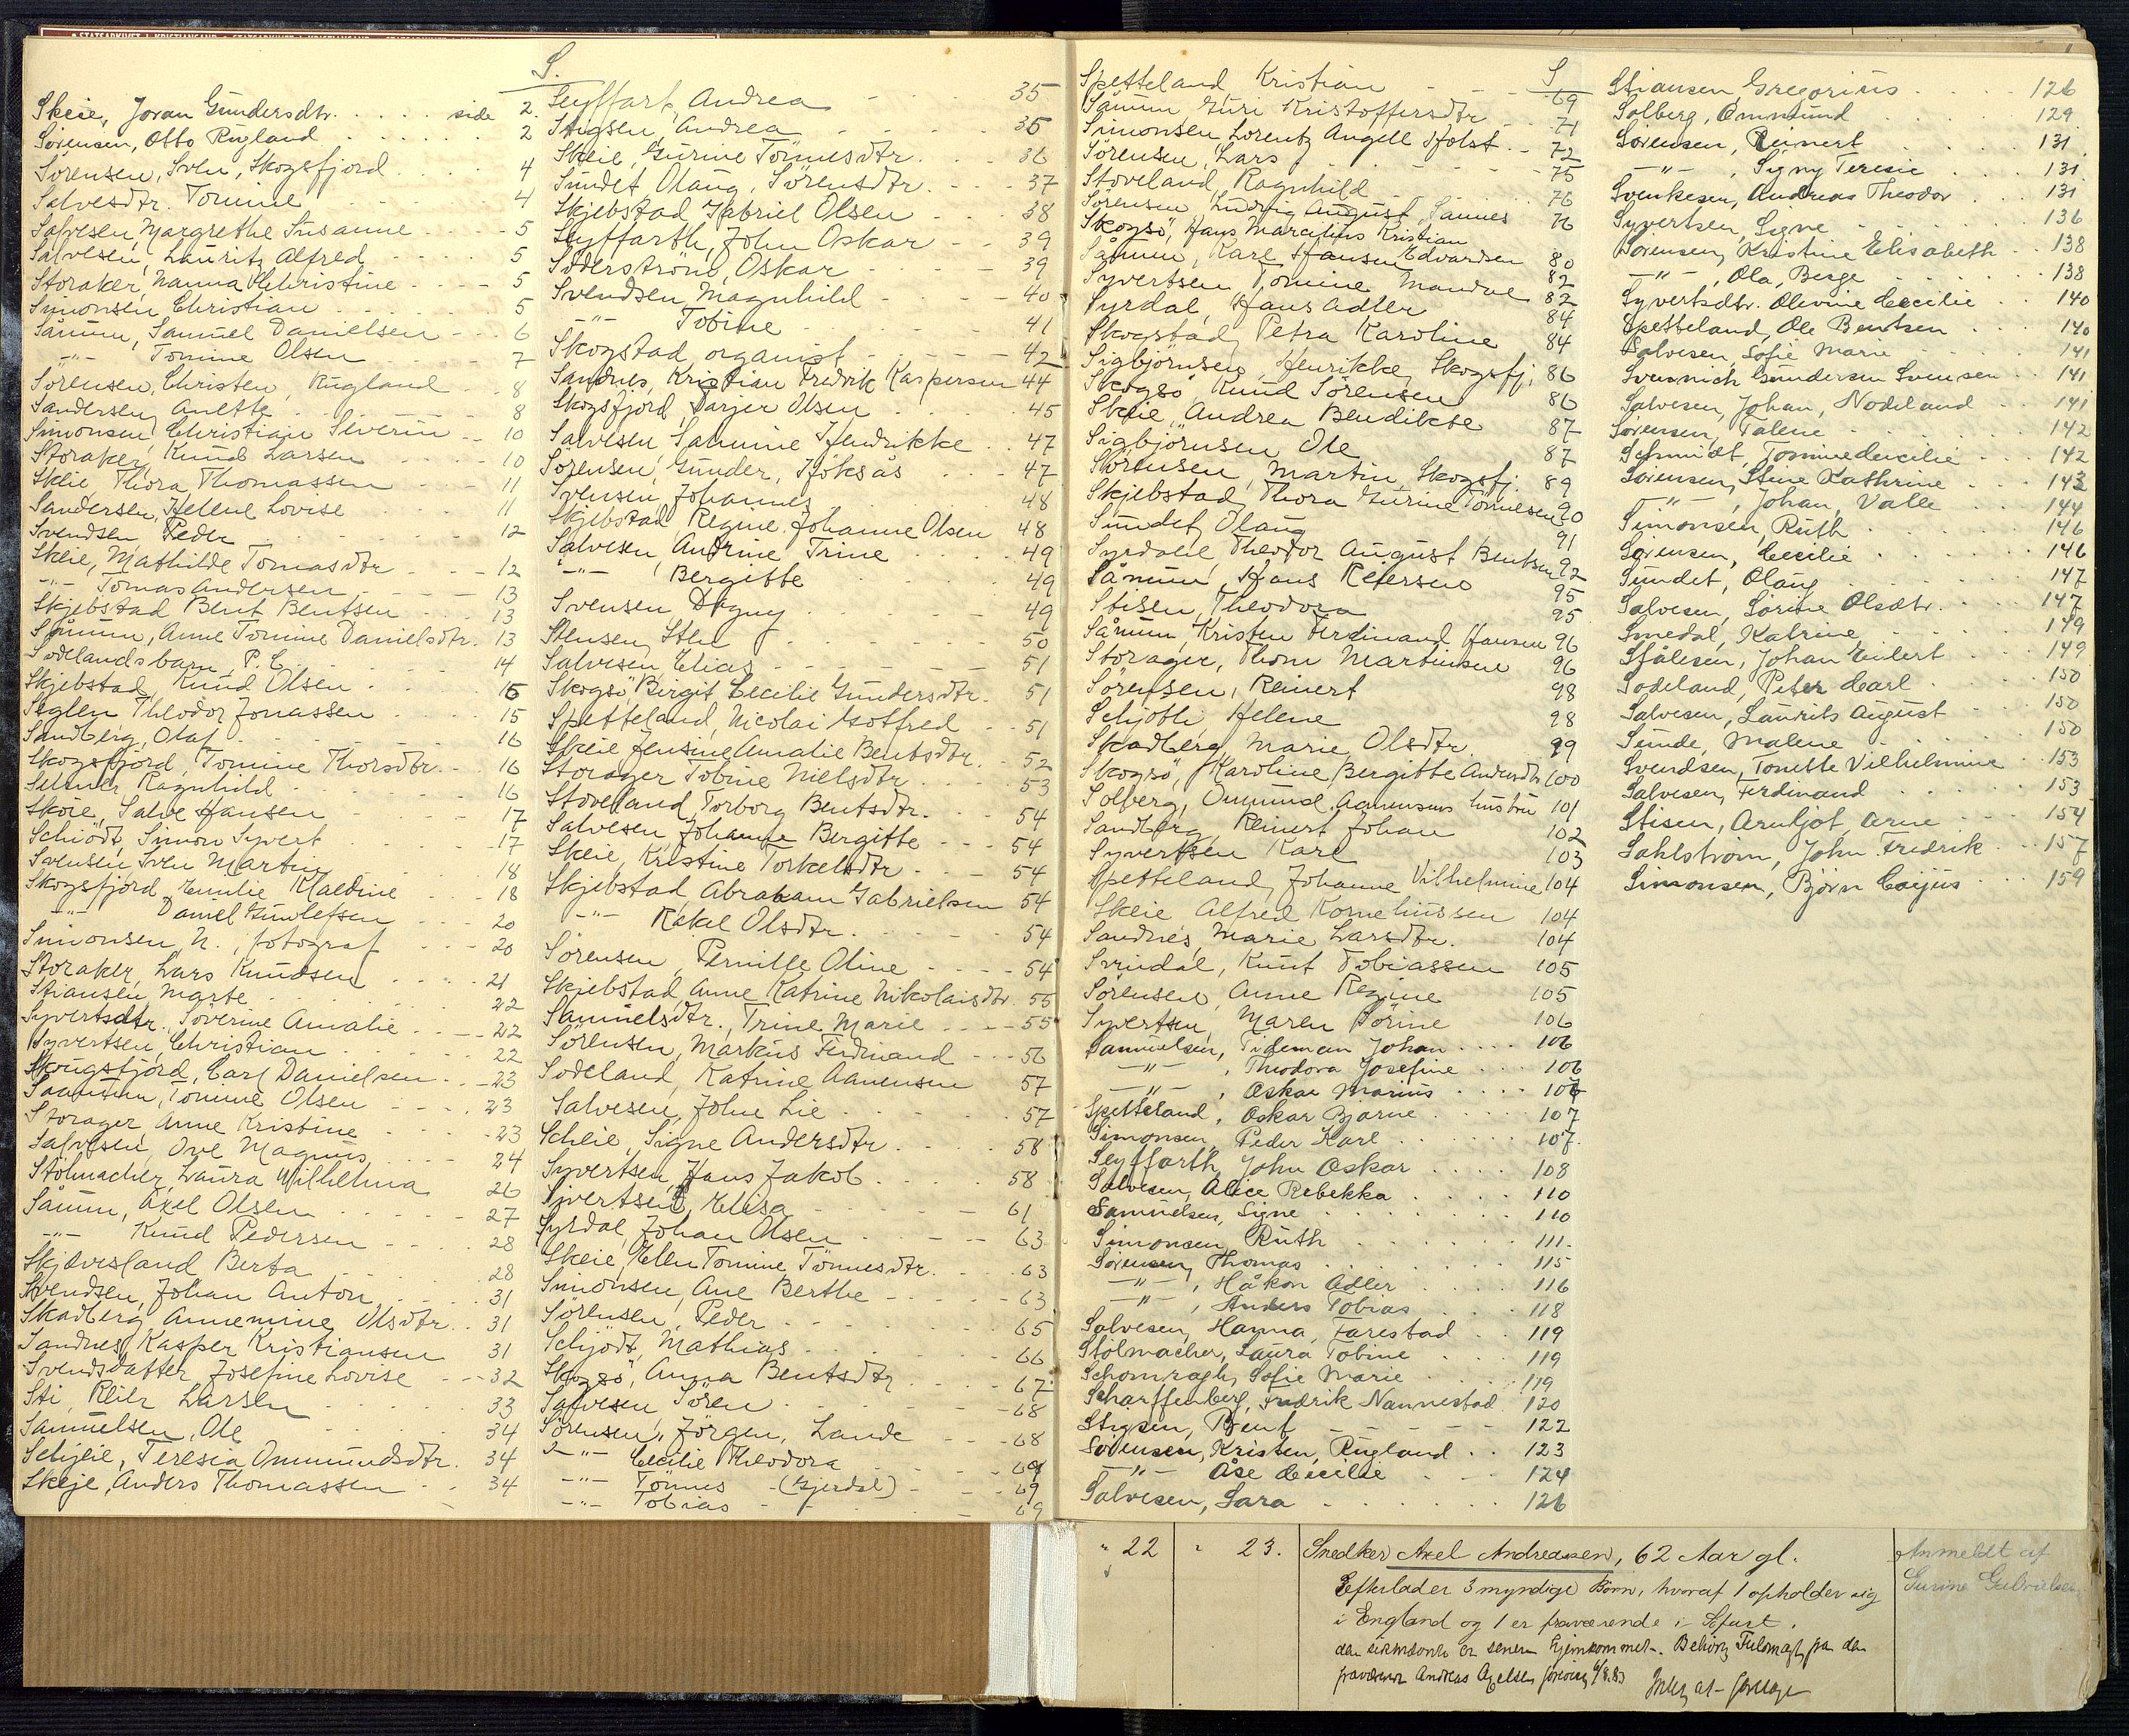 S.
Skeie, Joran Gundersdtr. side 2.
Sörensen, Otto Rugland 2
Sörensen, Sven, Skogsfjord 4
Salvesdtr. Tomine 4
Salvesen, Margrethe Susanne 5
Salvesen, Lauritz Alfred 5
Storaker, Nanna Christine 5
Simonsen Christian 5
Sånum, Samuel Danielsen 6
-"- Tomine Olsen 7
Sörensen, Christen, Rugland 8
Sandersen, Anette 8
Simonsen, Christian Severin 10
Storaker, Knud Larsen 10
Skeie Thora Thomassen 11
Sandersen, Helene Lovise 11
Svendsen Peder 12
Skeie, Mathilde Tomasdtr 12
-"- Tomas Andersen 13
Skjebstad Bent Bentsen 13
Sånum, Anne Tomine Danielsdtr. 13
Södelandsbarn, P.C. 14
Skjebstad, Knud Olsen 15
Seglen Theodor Jonassen 15
Sandberg, Olaf 16
Skogsfjord, Tomine Thorsdtr. 16
Selmer Ragnhild 16
Skeie, Salve Hansen 17
Schiödt, Simon Syvert 17
Svensen Sven Martin 18
Skogsfjord, Emilie Klaedine 18
-"- Daniel Gunlefsen 20
Simonsen, N., fotograf 20
Storaker, Lars Knudsen 21
Stiansen, Marte 22
Syvertsdtr. Severine Amalie 22
Syvertsen, Christian 22
Skougsfjord, Carl Danielsen 23
Saanum, Tomine Olsen 23
Storager Anne Kristine 23
Salvesen, Ove Magnus 24
Stölmacher, Laura Wilhelmina 26
Sånum, Axel Olsen 27
-"- Knud Pedersen 28
Skjævesland Berta 28
Svendsen, Johan Anton 31
Skadberg, Annemine Olsdtr. 31
Sandnes, Kasper Kristiansen 31
Svendsdatter Josefine Lovise 32
Sti, Peder Larsen 33
Samuelsen, Ole 34
Schjeie, Teresia Ommundsdtr. 34
Skeje, Anders Thomassen 34
Seyffart, Andrea 35
Stigsen, Andrea 35
Skeie, Gurine Tönnesdtr. 36
Sundet, Olaug, Sörensdtr. 37
Skjebstad, Gabriel Olsen 38
Seyffarth, John Oskar 39
Söderström, Oskar 39
Svendsen, Magnhild 40
-"- Tobine 41
Skogstad, organist 42
Sandnes, Kristian Fredrik Kaspersen 44
Skogsfjord, Tarjer Olsen 45
Salvesen, Samine Hendrikke 47
Sörensen, Gunder, Höksås 47
Svensen, Johannes 48
Skjebstad, Regine Johanne Olsen 48
Salvesen, Andrine Trine 49
-"- Bergitte 49
Svensen, Dagny 49
Stensen, Sten 50
Salvesen, Elias 51
Skogsö, Birgit Cecilie Gundersdtr. 51
Spetteland, Nicolai Gotfred 51
Skeie Jensine Amalie Bentsdtr. 52
Storager Tobine Nielsdtr. 53
Stoveland, Torborg Bentsdtr. 54
Salvesen, Johanne Bergitte 54
Skeie, Kristine Torkelsdtr 54
Skjebstad, Abraham Gabrielsen 54
-"- Rakel Olsdtr. 54
Sörensen, Pernille Oline 54
Skjebstad, Anne Katrine Nikolaisdtr. 55
Samuelsdtr., Trine Marie 55
Sörensen, Markus Ferdinand 56
Södeland, Katrine Aanensen 57
Salvesen, John Lie 57
Scheie, Signe Andersdtr. 58
Syvertsen, Hans Jakob 58
Sivertsen, Elisa 61
Syrdal, Johan Olsen 63
Skeie, Ellen Tomine Tönnesdtr. 63
Simonsen, Ane Berthe 63
Sörensen, Peder 65
Schjödt, Mathias 66
Skogsö, Anna Bentsdtr 67
Salvesen Sören 68
Sörensen, Jörgen, Lande 68
-"- Cecilie Theodora 69
-"- Tönnes (Gjerdal) 69
-"- Tobias 69
S
Spetteland Kristian 69
Sånum Guri Kristoffersdtr 71
Simonsen Lorentz Angell Holst 72
Sörensen, Lars 75
Stoveland, Ragnhild 76
Sörensen, Ludvig August, Sannes 76
Skogsö, Hans Marcelius Kristian
Sånum, Karl Hansen Edvardsen 80
Syvertsen Tomine Mandal 82
Syrdal, Hans Adler 82
Skogstad, Petra Karoline 84
Sigbjörnsen, Henrikke, Skogsfj. 86
Skogsö Knud Sörensen 86
Skeie, Andrea Bendikte 87
Sigbjörnsen Ole 87
Sörensen, Martin, Skogsfj. 89
Skjebstad, Thora Gurine Tönnesen 90
Sundet, Olaug 91
Syrdal, Theodor August Bentsen 92
Sånum, Hans Reiersen 95
Stisen, Theodora 95
Sånum, Kristen Ferdinand Hansen 96
Storager, Thom Martinsen 96
Sörensen, Reinert 98
Schjöth, Helene 98
Skadberg, Marie Olsdtr. 99
Skogsö, Karoline Bergitte Andersdtr 100
Solberg, Ommund Aanensens hustru 101
Sandberg, Reinert Johan 102
Syvertsen Karl 103
Spetteland, Johanne Vilhelmine 104
Skeie Alfred Korneliussen 104
Sandnes, Marie Larsdtr. 104
Svindal, Knut Tobiassen 105
Sörensen, Anne Regine 105
Syvertsen, Maren Sörine 106
Samuelsen, Tideman Johan 106
-"- , Theodora Josefine 106
-"- , Oskar Marius 107
Spetteland, Oskar Bjarne 107
Simonsen, Peder Karl 107.
Seyffarth, John Oskar 108
Salvesen, Alice Rebekka 110
Samuelsen, Signe 110
Simonsen, Ruth 111.
Sörensen, Thomas 115
-"- , Håkon Adler 116
-"- , Anders Tobias 118
Salvesen, Hanna, Farestad 119
Stölmacher, Laura Tobine 119
Schomragh, Sofie Marie 119
Scharffenberg, Fredrik Nannestad. 120
Stigsen, Bent 122
Sörensen, Kristen, Rugland 123
-"- Åse Cecilie 124
Salvesen, Sara 126
Stiansen Gregorius 126
Solberg, Ommund 129
Sörensen, Reinert 131.
-"- , Signy Teresie 131
Svenkesen, Andreas Theodor 131
Syvertsen, Signe 136
Sörensen, Kristine Elisabeth 138
-"- , Ola, Berge 138
Syvertsdtr. Olevine Cecilie 140
Spetteland, Ole Bentsen 140
Salvesen, Sofie Marie 141
Svennich Gundersen Svensen 141
Salvesen, Johan, Nodeland 141
Sörensen, Talene 142
Schmidt, Tomine Cecilie 142
Sörensen, Stine Kathrine 143
-"- , Johan, Valle 144
Simonsen, Ruth 146
Sörensen, Cecilie 146
Sundet, Olaug 147
Salvesen, Sörine Olsdtr. 147
Smedal, Katrine 149
Stålesen, Johan Eilert 149
Södeland, Peter Carl 150
Salvesen, Laurits August 150
Sunde, Malene 150
Svendsen, Tomette Vilhelmine 153
Salvesen, Ferdinand 153
Stisen, Arnljot Arne 154
Sahlström, John Fredrik 157
Simonsen, Björn Caijus 159
" 22 " 23. Snedker Axel Andreassen, 62 Aar gl.
Efterlader 3 myndige Børn, hvoraf 1 opholder sig
i England og 1 er fraværende i Søfart.
Anmeldt af